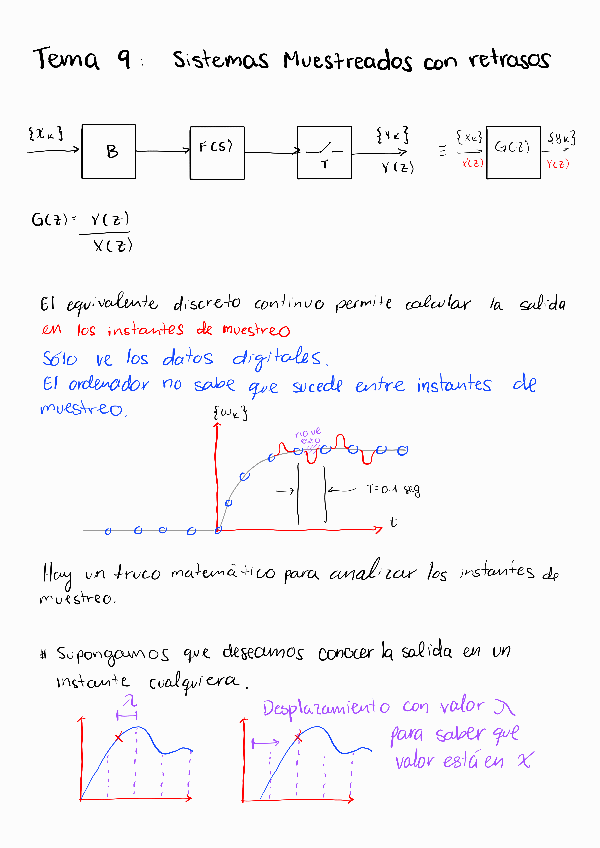 Tema 9: Sistemas Muestreados con retrasos
{Xk} B F(S) T {Yk} Y(Z) ≡ {Xk} X(Z) G(Z) {Yk} Y(Z)
G(Z) = Y(Z)
X(Z)
El equivalente discreto continuo permite calcular la salida
en los instantes de muestreo
Sólo ve los datos digitales.
El ordenador no sabe que sucede entre instantes de
muestreo.
{ωk}
no ve
esto
T=0.1 seg
t
Hay un truco matemático para analizar los instantes de
muestreo.
* Supongamos que deseamos conocer la salida en un
instante cualquiera.
λ
x
Desplazamiento con valor λ
para saber que
valor está en X
x